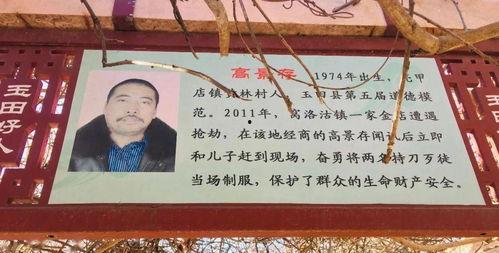 玉田好人
高景存 1974年出生,亮甲
店镇林村人,玉田县第五届道德模
范。2011年,窝洛沽镇一家金店遭遇
抢劫,在该地经商的高景存闻讯后立即
和儿子赶到现场,奋勇将两名持刀歹徒
当场制服,保护了群众的生命财产安全。